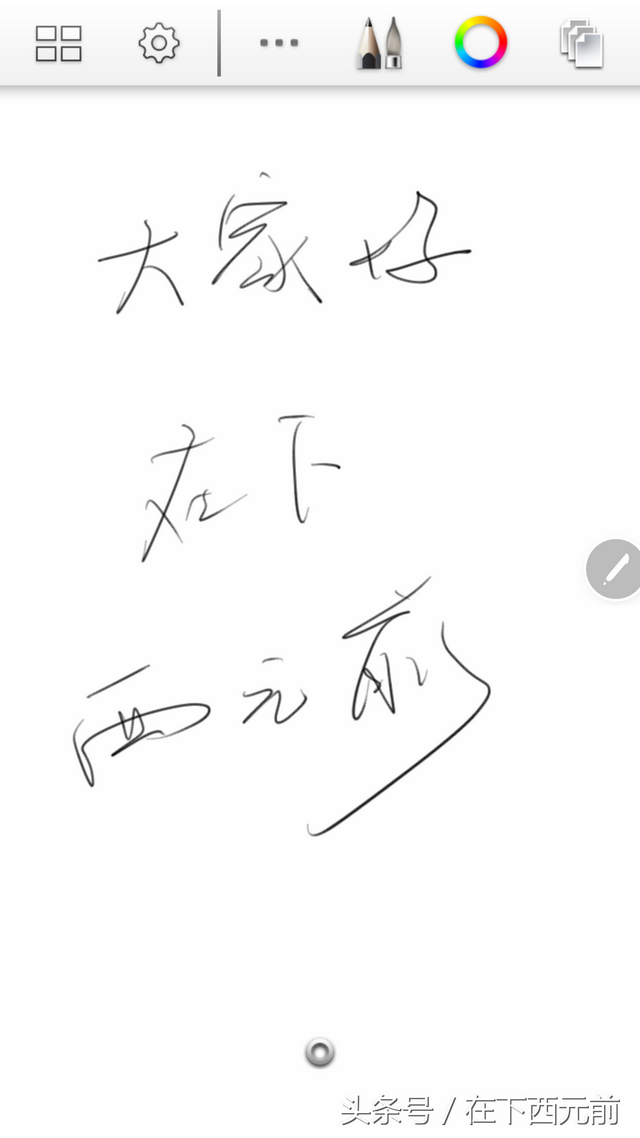 大家好
在下
西元前
头条号 / 在下西元前